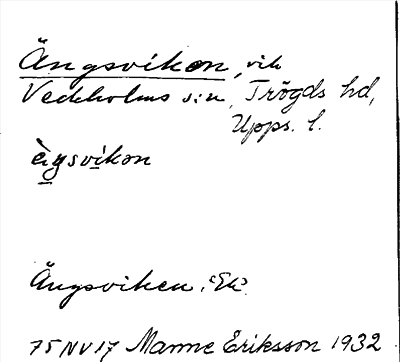 Ängsviken, vik
Veckholms s:n, Trögds hd,
Upps. l.
èŋsvikon
Ängsviken, "Ek".
75 NV 17 Manne Eriksson 1932